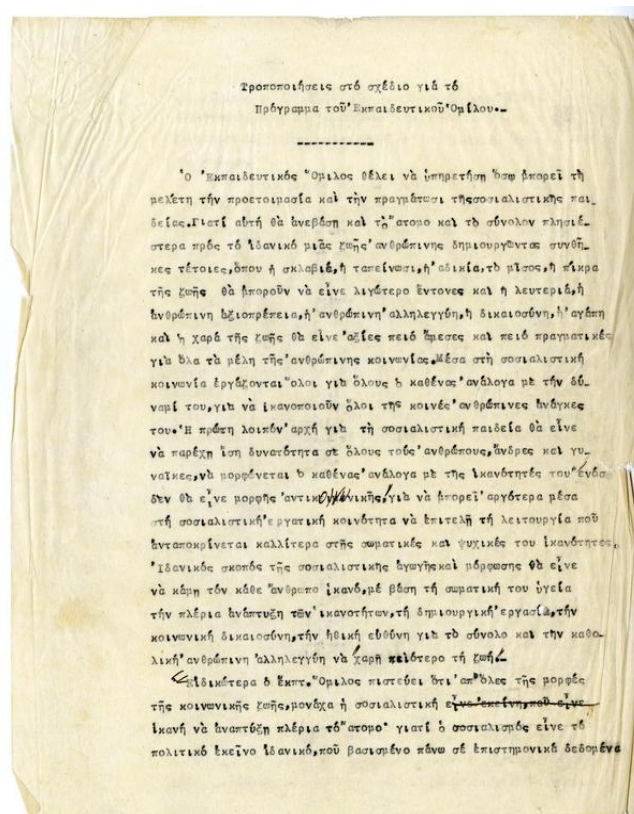 Τροποποιήσεις στό σχέδιο γιά τό
Πρόγραμμα τοῦ Ἐκπαιδευτικοῦ Ὁμίλου.-
Ὁ Ἐκπαιδευτικός Ὅμιλος θέλει νά ὑπηρετήση ὅσῳ μπορεῖ τή
μελέτη τήν προετοιμασία καί τήν πραγμάτωσι τῆς σοσιαλιστικῆς παι_
δείας. Γιατί αὐτή θά ἀνεβάση καί τό ἄτομο καί τό σύνολον πλησιέ_
στερα πρός τό ἰδανικό μιᾶς ζωῆς ἀνθρώπινης δημιουργῶντας συνθῆ_
κες τέτοιες, ὅπου ἡ σκλαβιά, ἡ ταπείνωσι, ἡ ἀδικία, τό μῖσος, ἡ πίκρα
τῆς ζωῆς θά μποροῦν νά εἶνε λιγώτερο ἔντονες καί ἡ λευτεριά, ἡ
ἀνθρώπινη ἀξιοπρέπεια, ἡ ἀνθρώπινη ἀλληλεγγύη, ἡ δικαιοσύνη, ἡ ἀγάπη
καί ἡ χαρά τῆς ζωῆς θά εἶνε ἀξίες πειό ἄμεσες καί πειό πραγματικές
γιά ὅλα τά μέλη τῆς ἀνθρώπινης κοινωνίας. Μέσα στή σοσιαλιστική
κοινωνία ἐργάζονται ὅλοι γιά ὅλους ὁ καθένας ἀνάλογα μέ τήν δύ_
ναμί του, γιά νά ἱκανοποιοῦν ὅλοι τῆς κοινές ἀνθρώπινες ἀνάγκες
του. Ἡ πρώτη λοιπόν ἀρχή γιά τή σοσιαλιστική παιδεία θά εἶνε
νά παρέχη ἴση δυνατότητα σέ ὅλους τούς ἀνθρώπους, ἄνδρες καί γυ_
ναῖκες, νά μορφώνεται ὁ καθένας ἀνάλογα μέ τῆς ἱκανότητές του
δέν θά εἶνε μορφῆς γιά νά μπορεῖ ἀργότερα μέσα
στή σοσιαλιστική ἐργατική κοινότητα νά ἐπιτελῆ τή λειτουργία ποῦ
ἀνταποκρίνεται καλλίτερα στῆς σωματικές καί ψυχικές του ἱκανότητες.
Ἰδανικός σκοπός τῆς σοσιαλιστικῆς ἀγωγῆς καί μόρφωσης θά εἶνε
νά κάμη τόν κάθε ἄνθρωπο ἱκανό, μέ βάση τή σωματική του ὑγεία
τήν πλέρια ἀνάπτυξη τῶν ἱκανοτήτων, τή δημιουργική ἐργασία, τήν
κοινωνική δικαιοσύνη, τήν ἠθική εὐθύνη γιά τό σύνολο καί τήν καθο_
λική ἀνθρώπινη ἀλληλεγγύη νά χαρῆ πειότερο τή ζωή.-
Εἰδικώτερα ὁ ἐκπτ. Ὅμιλος πιστεύει ὅτι ἀπ' ὅλες τῆς μορφές
τῆς κοινωνικῆς ζωῆς, μονάχα ἡ σοσιαλιστική εἶνε ἐκείνη, ποῦ εἶνε
ἱκανή νά ἀναπτύξη πλέρια τό ἄτομο γιατί ὁ σοσιαλισμός εἶνε τό
πολιτικό ἐκεῖνο ἰδανικό, ποῦ βασισμένο πάνω σέ ἐπιστημονικά δεδομένα